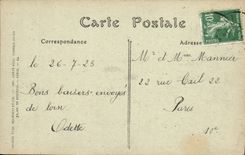 Carte Postale
Correspondance
Adresse
le 26-7-25
Bons baisers envoyés
de loin
Odette
Mr et Mme Mannier
22 rue Cail 22
Paris
10e